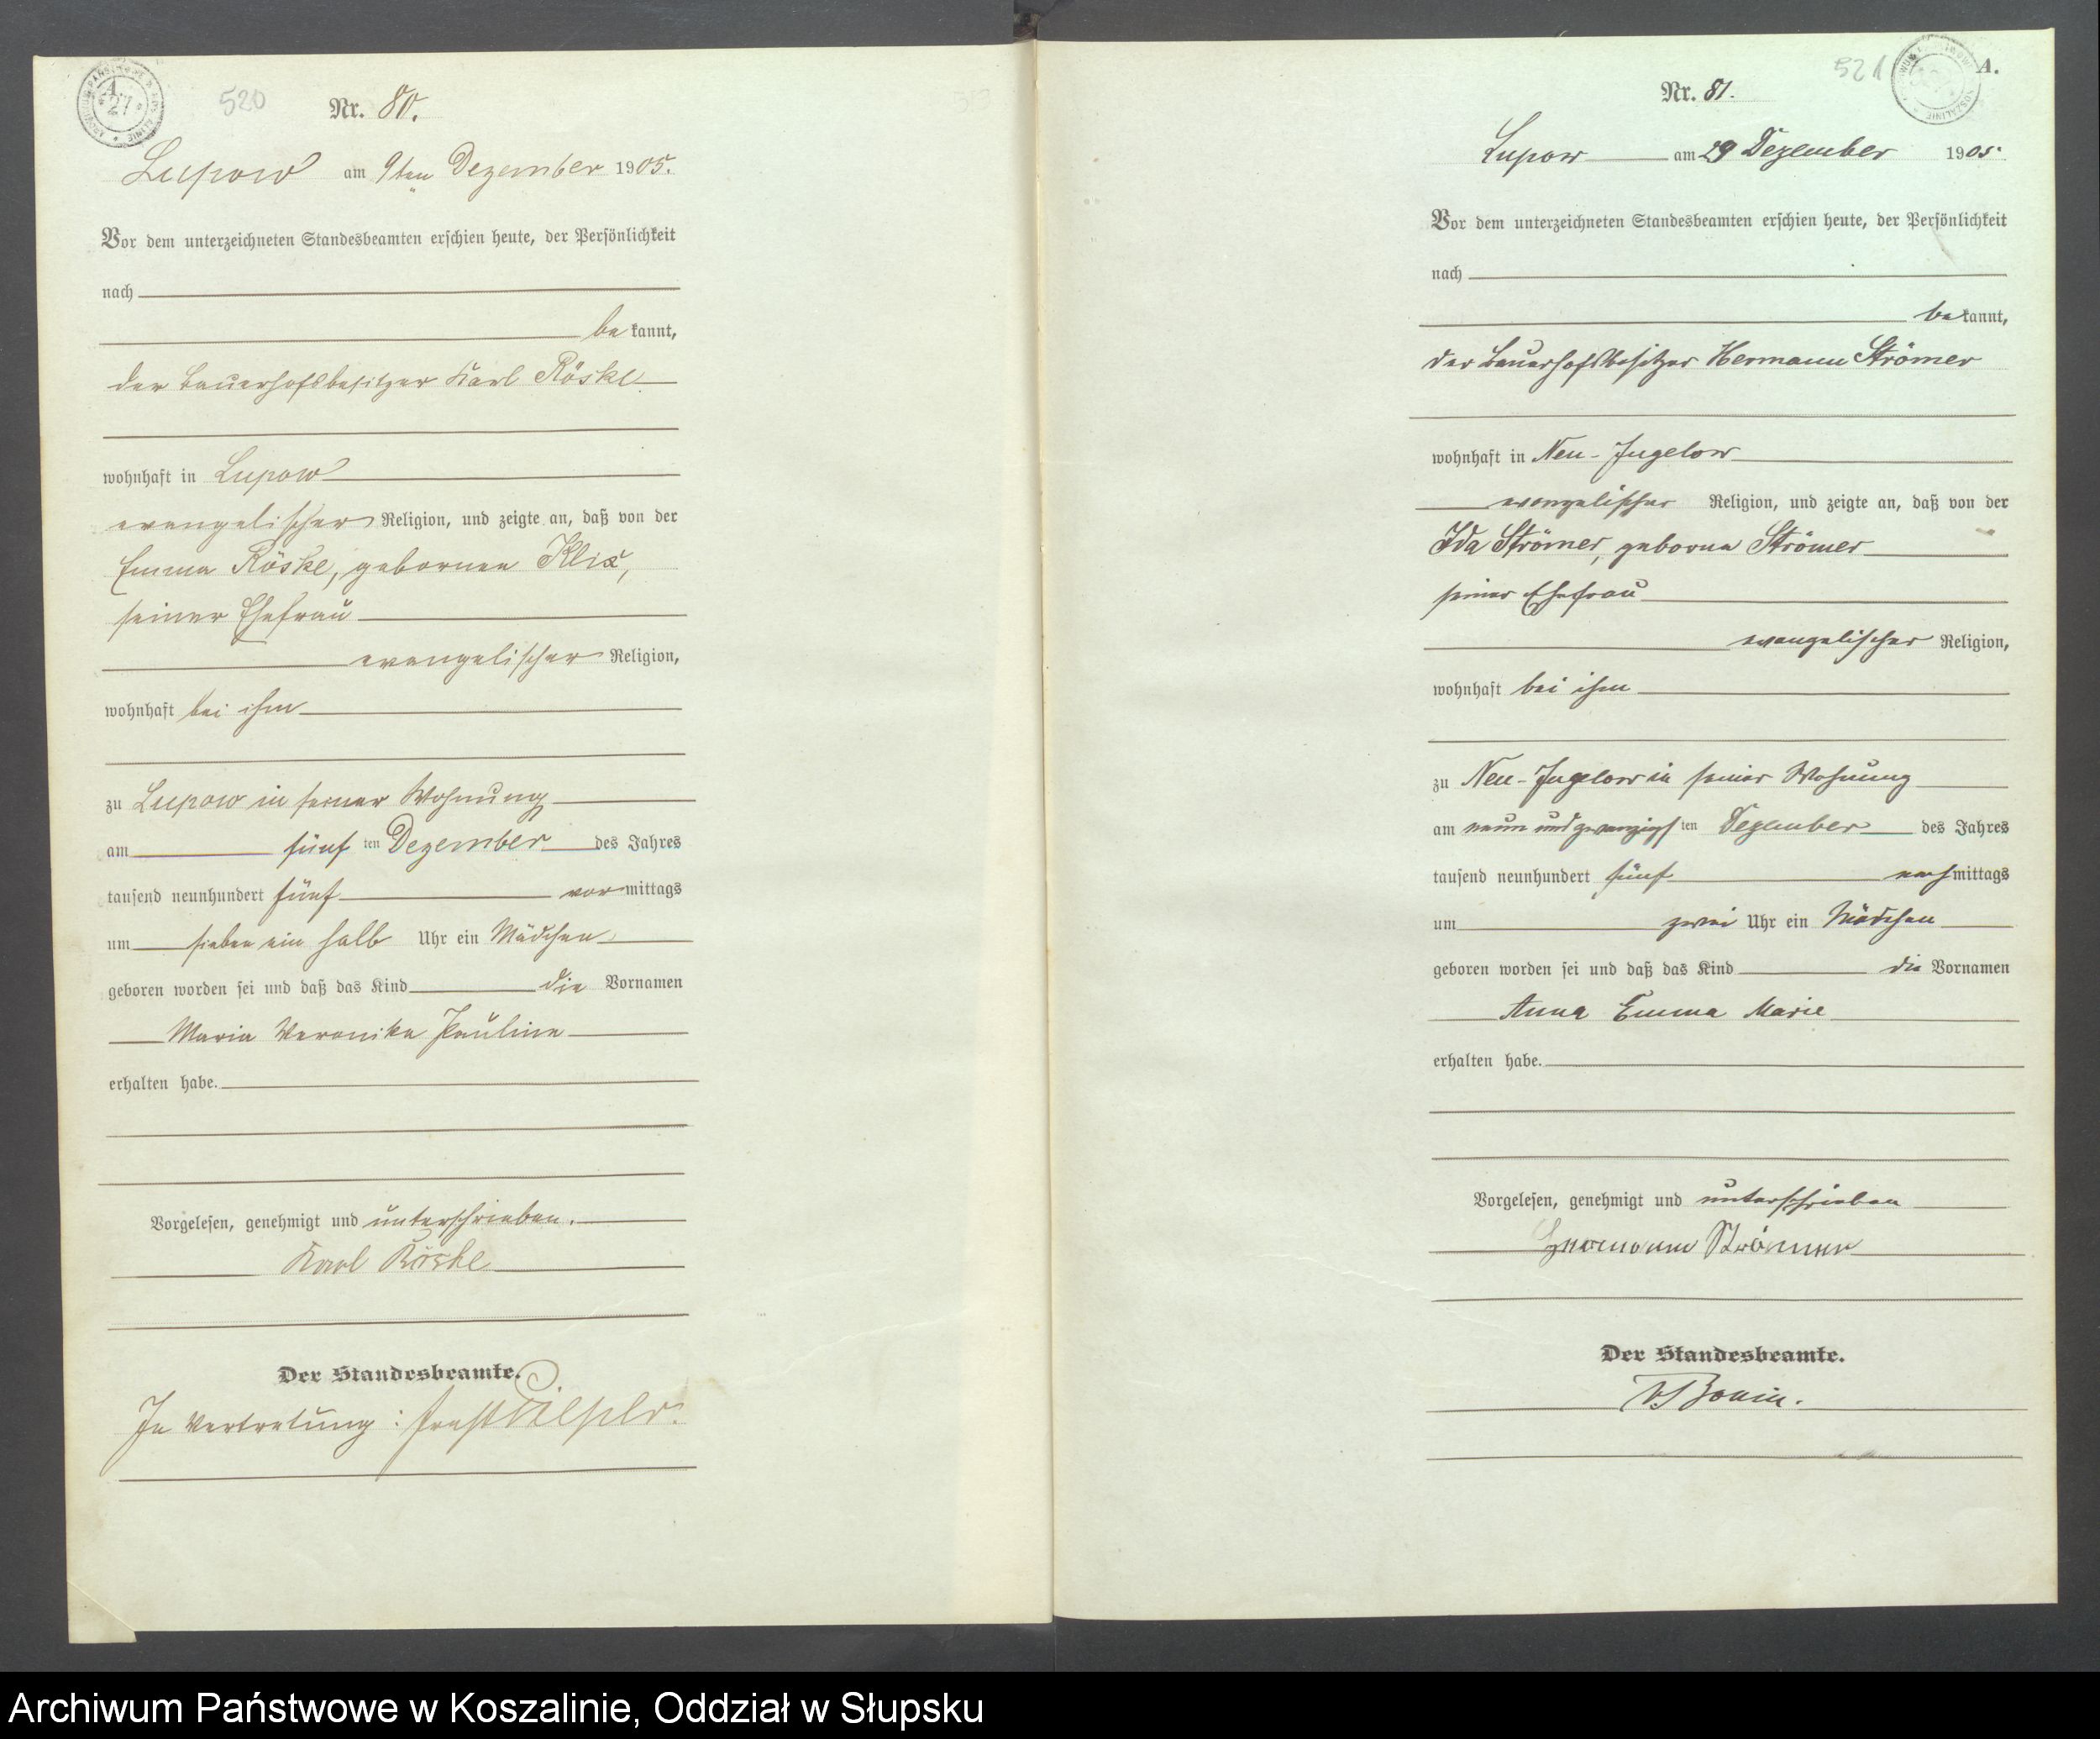 520
Nr. 80.
Lupow am 9ten Dezember 1905.
Vor dem unterzeichneten Standesbeamten erschien heute, der Persönlichkeit
nach
be kannt,
der Bauerhofsbesitzer Karl Röske
wohnhaft in Lupow
evangelischer Religion, und zeigte an, daß von der
Emma Röske, gebornen Klix,
seiner Ehefrau
evangelischer Religion,
wohnhaft bei ihm
zu Lupow in seiner Wohnung
am fünf ten Dezember des Jahres
tausend neunhundert fünf vor mittags
um sieben ein halb Uhr ein Mädchen
geboren worden sei und daß das Kind die Vornamen
Maria Veronika Pauline
erhalten habe.
Vorgelesen, genehmigt und unterschrieben.
Karl Röske
Der Standesbeamte.
In Vertretung:
521
A.
Nr. 81.
Lupow am 29 Dezember 1905.
Vor dem unterzeichneten Standesbeamten erschien heute, der Persönlichkeit
nach
be kannt,
der Bauerhofsbesitzer Hermann Strömer
wohnhaft in Neu-Jugelow
evangelischer Religion, und zeigte an, daß von der
Ida Strömer, geborne Strömer
seiner Ehefrau
evangelischer Religion,
wohnhaft bei ihm
zu Neu-Jugelow in seiner Wohnung
am neun und zwanzigst ten Dezember des Jahres
tausend neunhundert fünf nachmittags
um zwei Uhr ein Mädchen
geboren worden sei und daß das Kind die Vornamen
Anna Emma Marie
erhalten habe.
Vorgelesen, genehmigt und unterschrieben
Hermann Strömer
Der Standesbeamte.
v Bonin.
Archiwum Państwowe w Koszalinie, Oddział w Słupsku